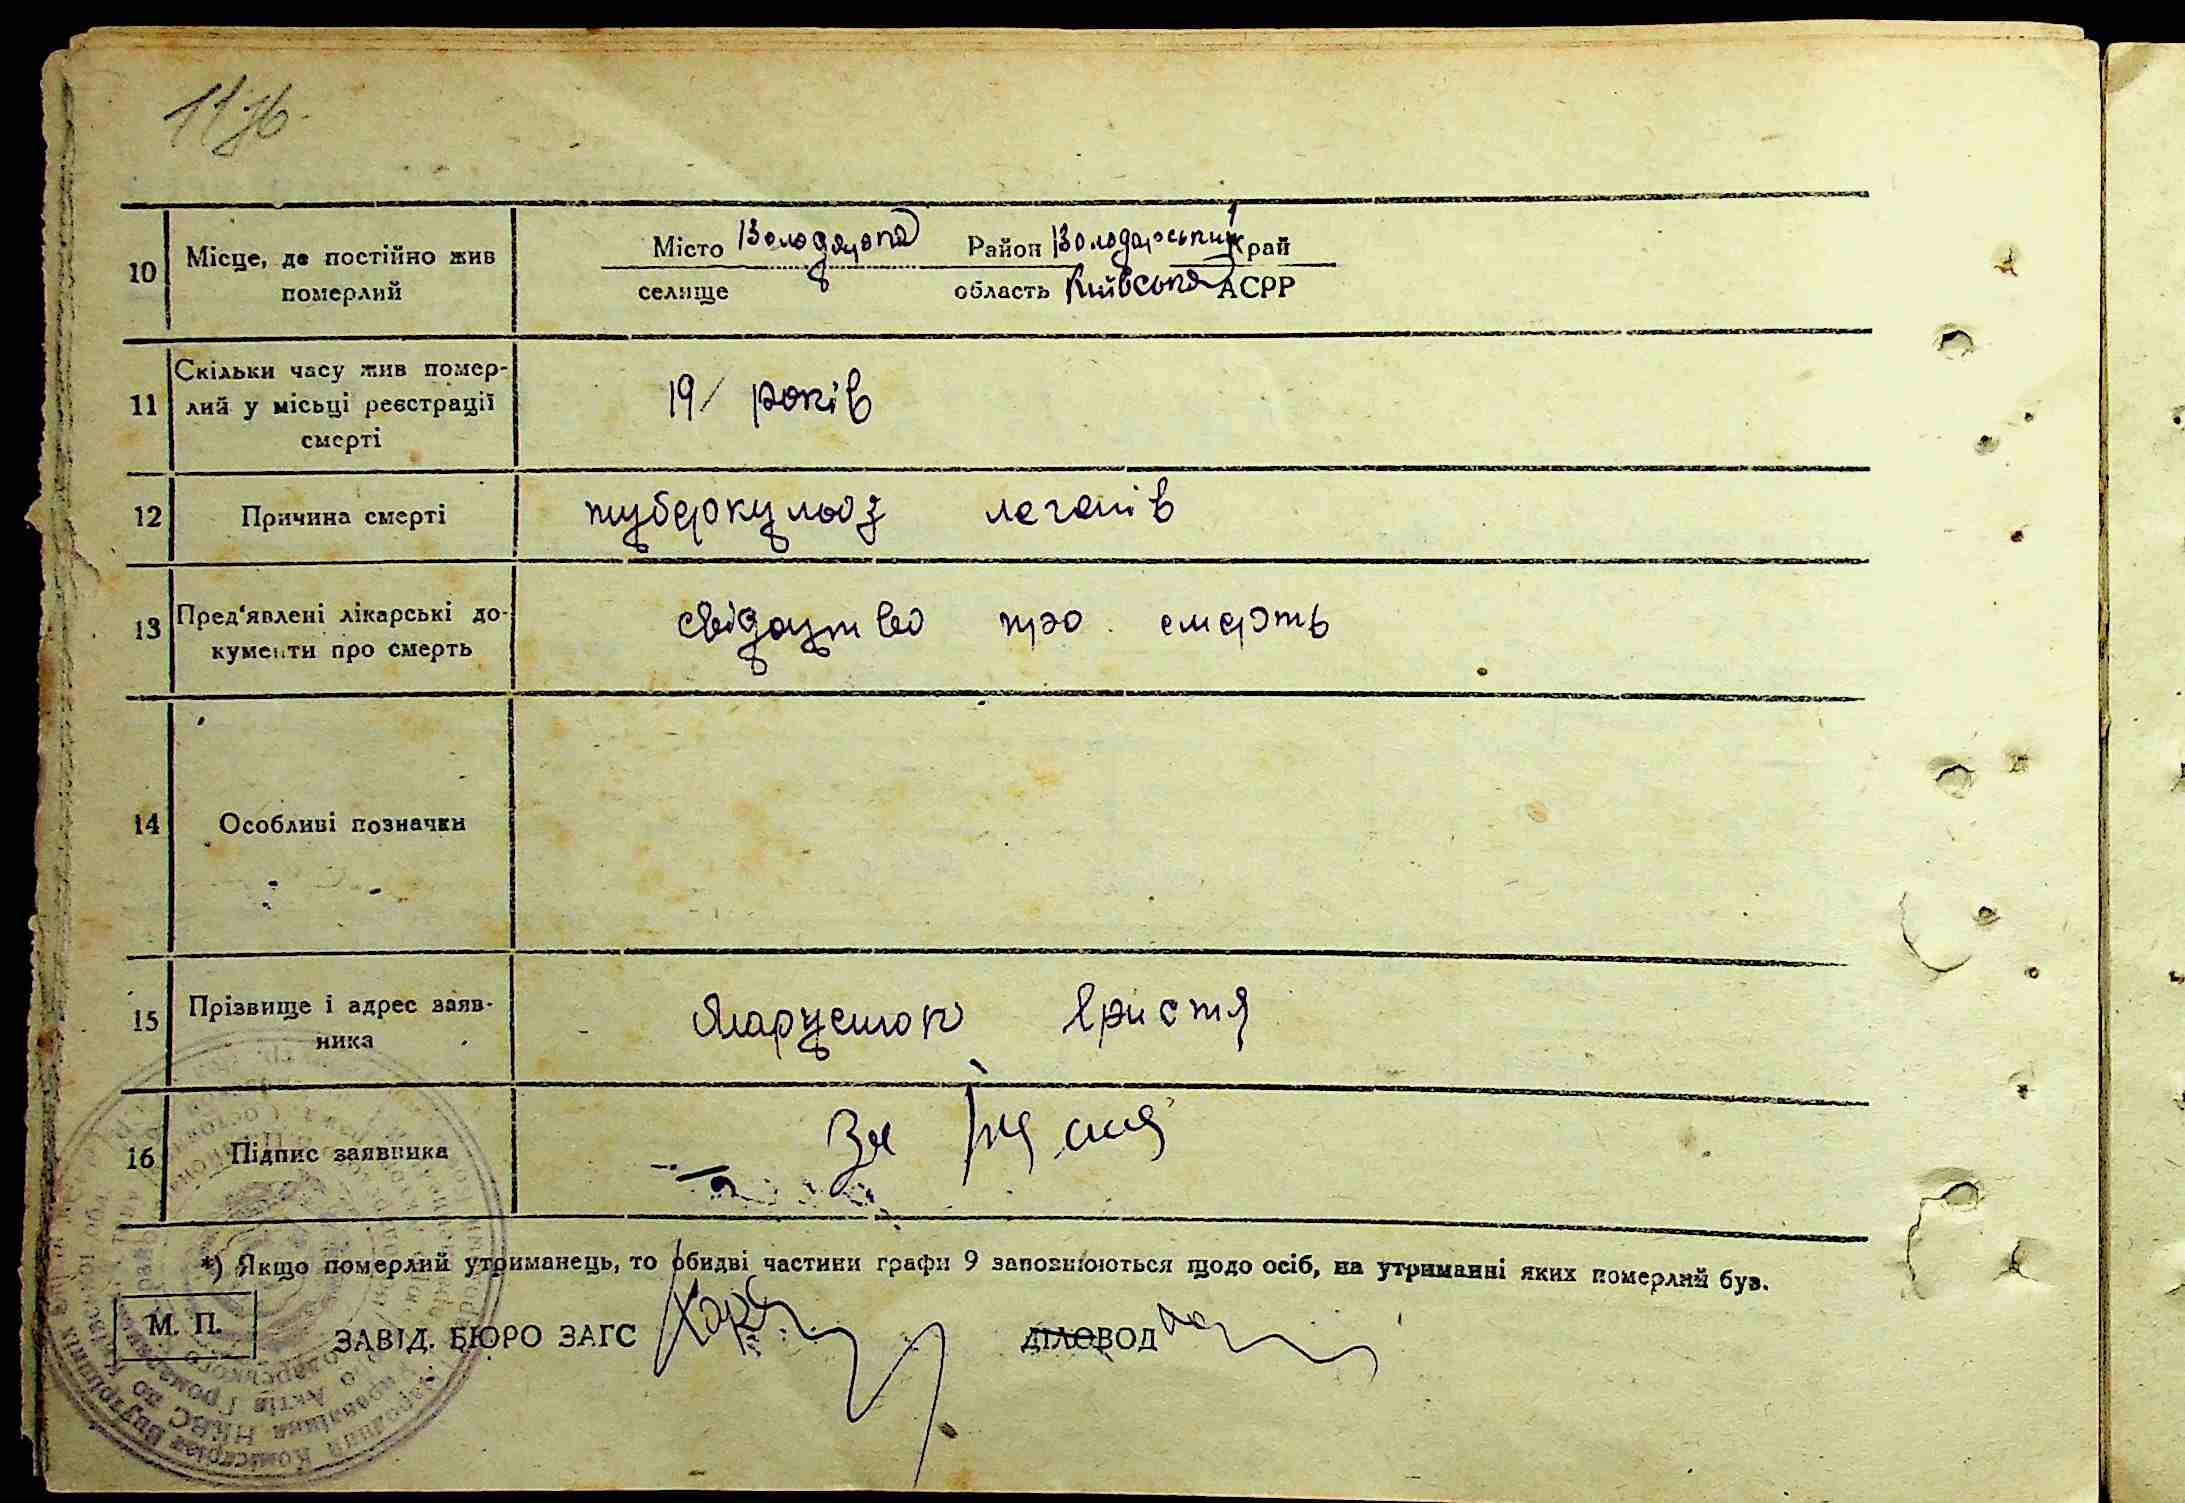 10 Місце, де постійно жив
померлий
Місто Володарка Район Володарський Край
селище область Київська АСРР
11 Скільки часу жив помер-
лий у місьці реєстрації
смерті
19 років
12 Причина смерті
туберкульоз легенів
13 Пред'явлені лікарські до-
кументи про смерть
свідоцтво про смерть
14 Особливі позначки
15 Прізвище і адрес заяв-
ника
Марущак Христя
16 Підпис заявника
За
*) Якщо померлий утриманець, то обидві частини графи 9 заповнюються щодо осіб, на утриманні яких померлий був.
М. П.
ЗАВІД. БЮРО ЗАГС ДІЛОВОД